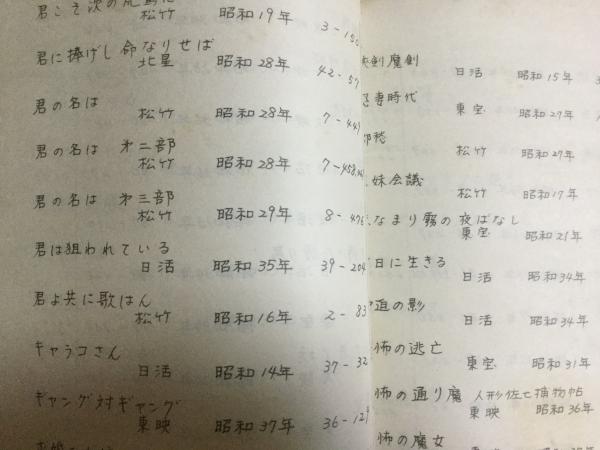 君こそ次の
松竹 昭和19年 3-150
君に捧げし命なりせば
北星 昭和28年 42-57
君の名は
松竹 昭和28年 7-449
君の名は 第二部
松竹 昭和28年 7-458
君の名は 第三部
松竹 昭和29年 8-476
君は狙われている
日活 昭和35年 39-204
君よ共に歌はん
松竹 昭和16年 2-83
キャラコさん
日活 昭和14年 37-32
ギャング対ギャング
東映 昭和37年 36-129
剣魔剣
日活 昭和15年
時代
東宝 昭和29年
愁
松竹 昭和29年
妹会議
松竹 昭和17年
なまり霧の夜ばなし
東宝 昭和21年
日に生きる
日活 昭和34年
の影
日活 昭和34年
怖の逃亡
東宝 昭和31年
怖の通り魔 人形佐七捕物帖
東映 昭和36年
怖の魔女